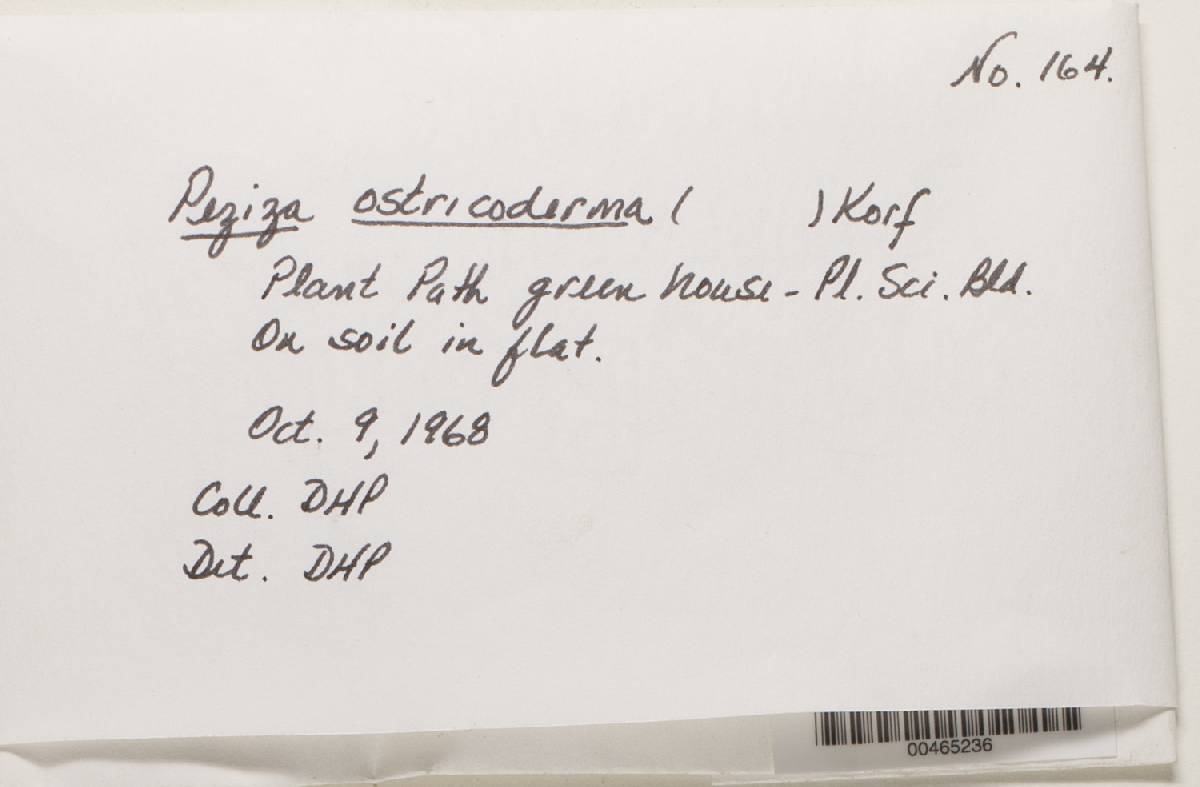 No. 164.
Peziza ostricoderma ( ) Korf
Plant Path green house - Pl. Sci. Bld.
On soil in flat.
Oct. 9, 1968
Coll. DHP
Det. DHP
00465236